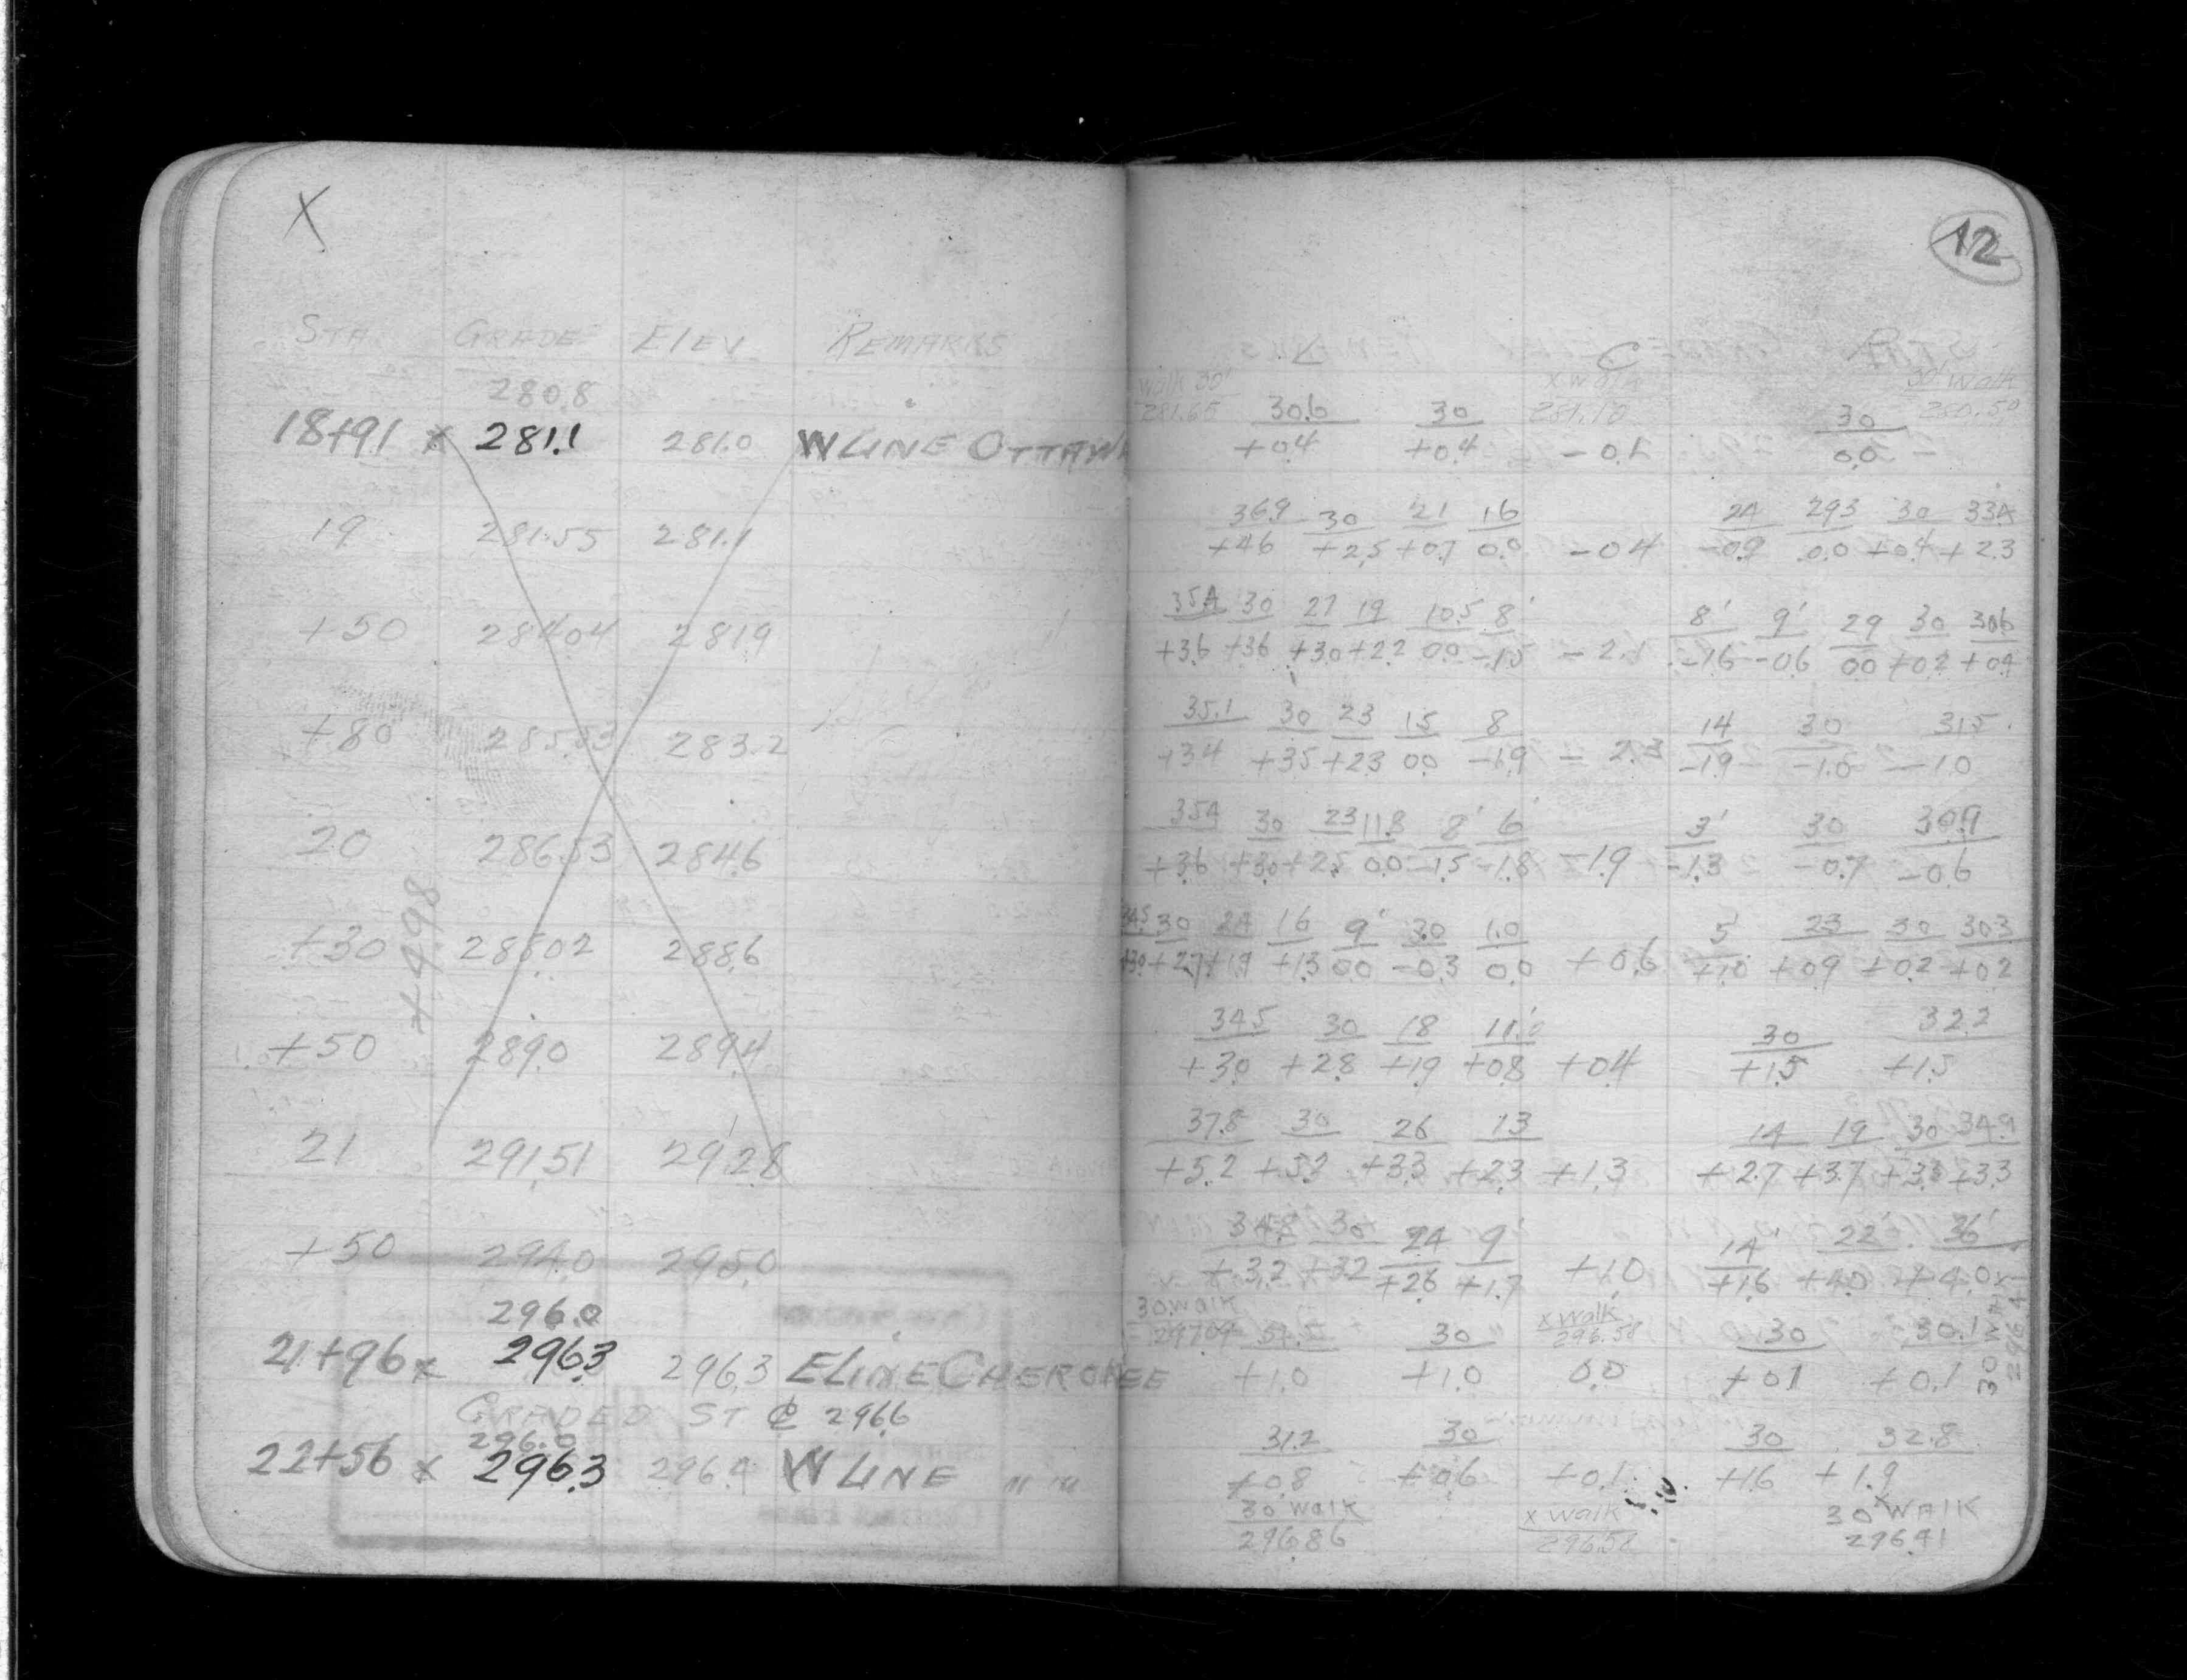 X
STA GRADE ELEV REMARKS
280.8
18+91 x 281.1 281.0 W LINE OTTAWA
19 281.55 281.1
+50 284.04 281.9
+80 285.53 283.2
20 286.53 284.6
+4.98
+30 288.02 288.6
+50 289.0 289.4
21 291.51 292.8
+50 294.0 295.0
296.0
21+96 x 296.3 296.3 E LINE CHEROKEE
GRADED ST ₵ 296.6
296.0
22+56 x 296.3 296.4 W LINE " "
12
L C R
walk 30' x walk 30' walk
281.65 30.6 30 281.10 30 280.50
+0.4 +0.4 -0.1 0.0
36.9 30 21 16 24 29.3 30 33.4
+4.6 +2.5 +0.7 0.0 -0.4 -0.9 0.0 +0.4 +2.3
35.4 30 27 19 10.5 8' 8' 9' 29 30 30.6
+3.6 +3.6 +3.0 +2.2 0.0 -1.5 -2.1 -1.6 -0.6 0.0 +0.2 +0.4
35.1 30 23 15 8 14 30 31.5
+3.4 +3.5 +2.3 0.0 -1.9 -2.3 -1.9 -1.0 -1.0
35.4 30 23 11.8 8' 6' 3' 30 30.9
+3.6 +3.0 +2.5 0.0 -1.5 -1.8 -1.9 -1.3 -0.7 -0.6
34.5 30 24 16 9' 3.0 1.0 5' 23 30 30.3
+3.0 +2.7 +1.9 +1.3 0.0 -0.3 0.0 +0.6 +1.0 +0.9 +0.2 +0.2
34.5 30 18 11' 30 32.2
+3.0 +2.8 +1.9 +0.8 +0.4 +1.5 +1.5
37.8 30 26 13 14 19 30 34.9
+5.2 +5.2 +3.3 +2.3 +1.3 +2.7 +3.7 +3.3
34.8 30 24 9' 14' 22' 36'
+3.2 +3.2 +2.6 +1.7 +1.0 +1.6 +4.0 +4.0
30 walk x walk
297.04 30 296.58 30 30.1
+1.0 +1.0 0.0 +0.1 +0.1
31.2 30 30 32.8
+0.8 +0.6 +0.1 +1.6 +1.9
30 walk x walk 30 x WALK
296.86 296.56 296.41